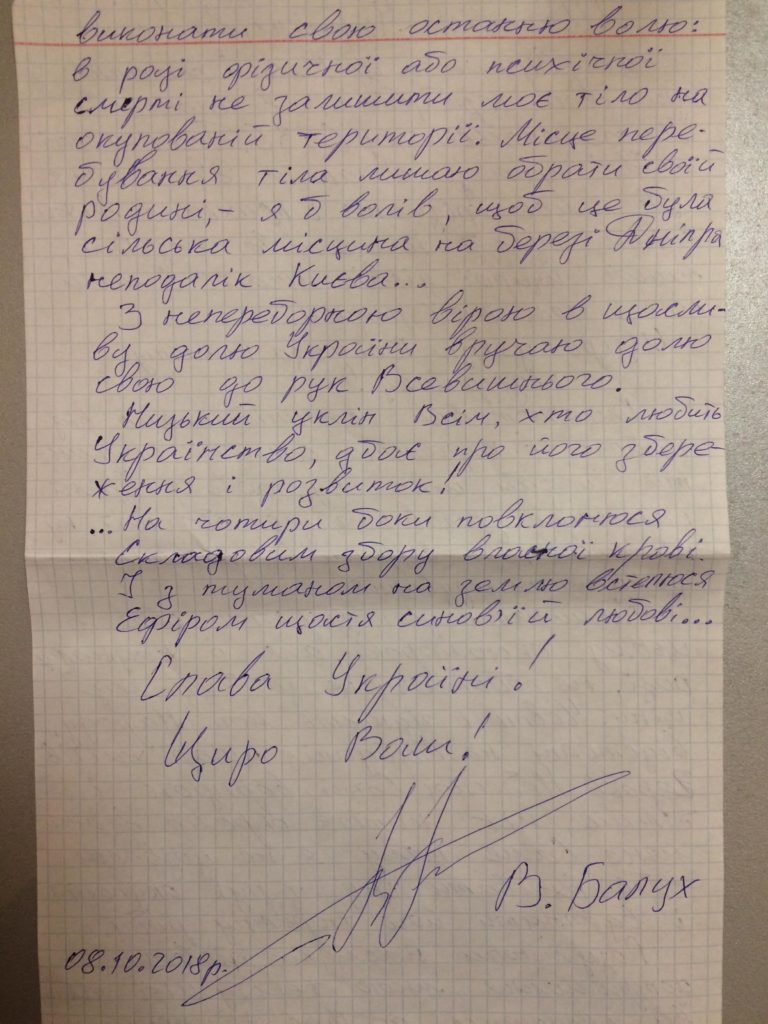 виконати свою останню волю:
в разі фізичної або психічної
смерті не залишити моє тіло на
окупованій території. Місце пере-
бування тіла лишаю обрати своїй
родині, – я б волів, щоб це була
сільська місцина на березі Дніпра
неподалік Києва...
З непереборною вірою в щасли-
ву долю України вручаю долю
свою до рук Всевишнього.
Низький уклін Всім, хто любить
Українство, дбає про його збере-
ження і розвиток!
...На чотири боки повклонюся
Складовим збору власної крові.
І з туманом на землю встелюся
Ефіром щастя синов'їй любові...
Слава Україні!
Щиро Ваш!
В. Балух
08.10.2018р.